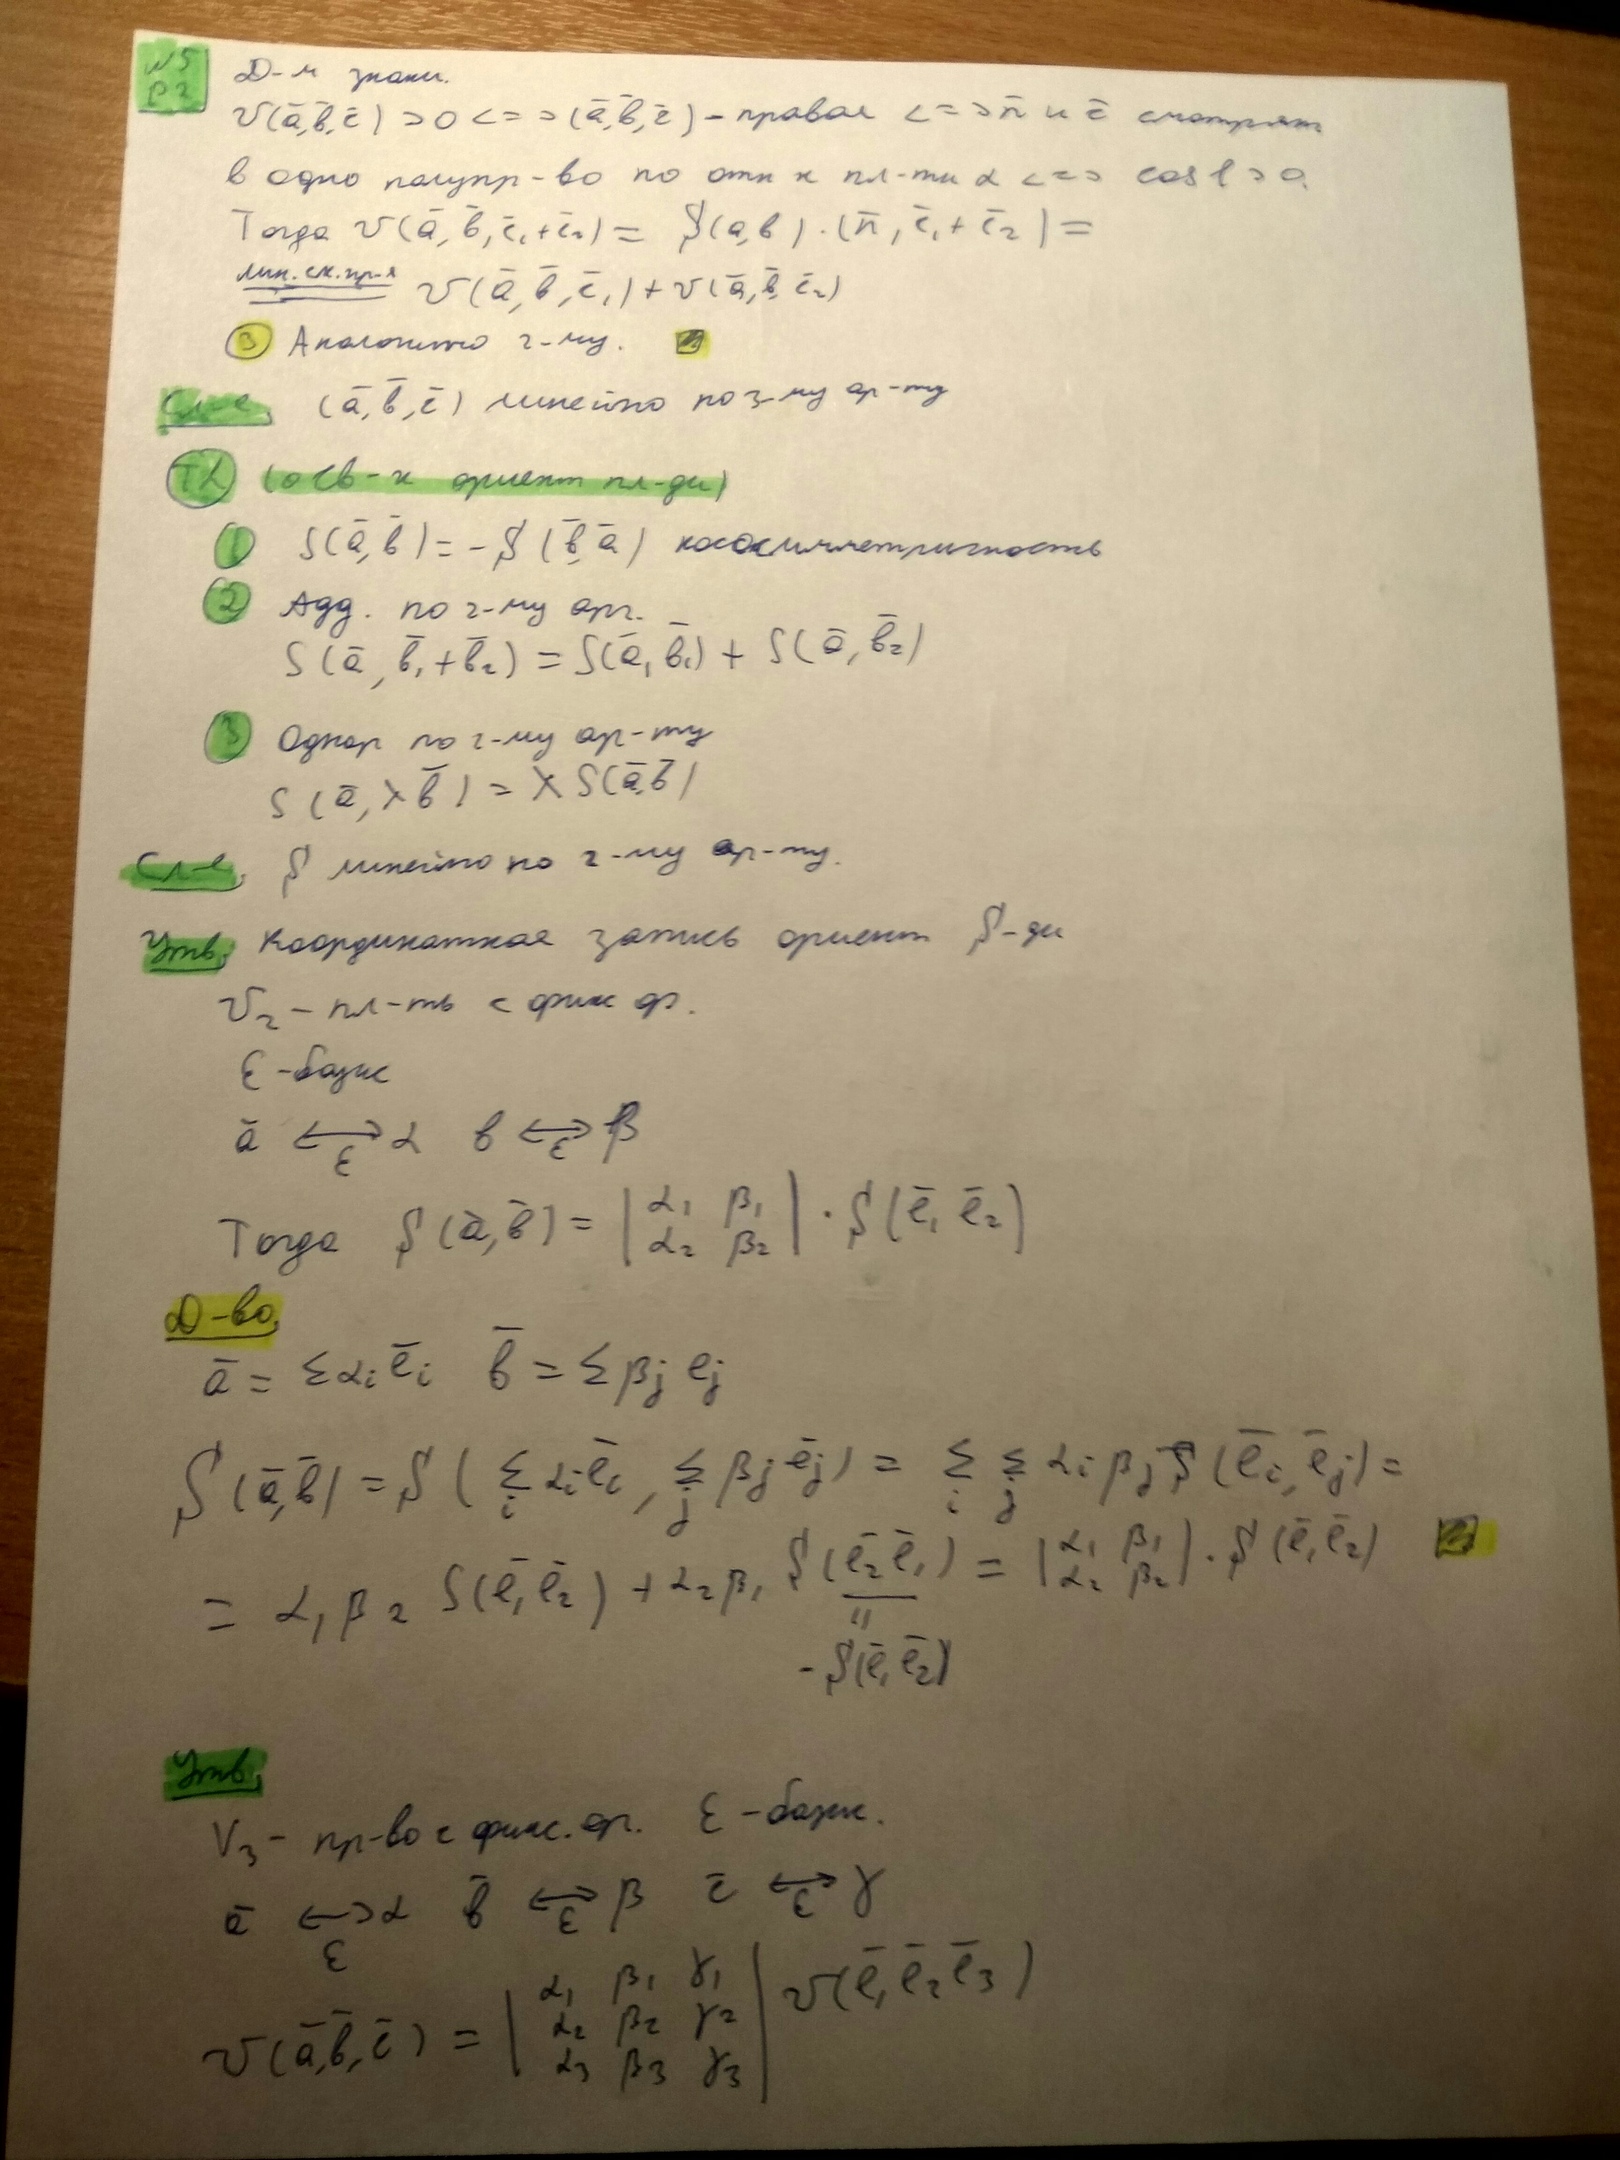 N5
p2
Д-м знаки.
V(ā,b̄,c̄) >0 <=> (ā,b̄,c̄) - правая <=> n̄ и c̄ смотрят
в одно полупр-во по отн к пл-ти α <=> cos φ > 0.
Тогда V(ā,b̄,c̄₁+c̄₂) = S(a,b)·(n̄,c̄₁+c̄₂) =
лин.ск.пр-я V(ā,b̄,c̄₁)+V(ā,b̄,c̄₂)
③ Аналогично 2-му.
Сл-е. (ā,b̄,c̄) линейно по 3-му ар-ту
Th (о св-х ориент пл-ди)
① S(ā,b̄) = -S(b̄,ā) кососимметричность
② Адд. по 2-му арг.
S(ā,b̄₁+b̄₂) = S(ā,b̄₁) + S(ā,b̄₂)
③ Однор по 2-му ар-ту
S(ā,λb̄) = λS(ā,b̄)
Сл-е. S линейно по 2-му ар-ту.
Утв. Координатная запись ориент S-ди
V₂ - пл-ть с фикс ор.
ε-базис
ā ⟷ε α b ⟷ε β
Тогда S(ā,b̄) = | α₁ β₁ | · S(ē₁ ē₂)
α₂ β₂
Д-во.
ā = Σαᵢēᵢ b̄ = Σβⱼeⱼ
S(ā,b̄) = S(Σᵢ αᵢēᵢ, Σⱼ βⱼēⱼ) = Σᵢ Σⱼ αᵢβⱼS(ēᵢ,ēⱼ) =
= α₁β₂ S(ē₁ē₂) + α₂β₁ S(ē₂ē₁) = | α₁ β₁ | · S(ē₁ē₂)
α₂ β₂
"
-S(ē₁ē₂)
Утв.
V₃ - пр-во с фикс.ор. ε-базис.
ā ⟷ε α b̄ ⟷ε β c̄ ⟷ε γ
V(ā,b̄,c̄) = | α₁ β₁ γ₁ | V(ē₁ē₂ē₃)
α₂ β₂ γ₂
α₃ β₃ γ₃